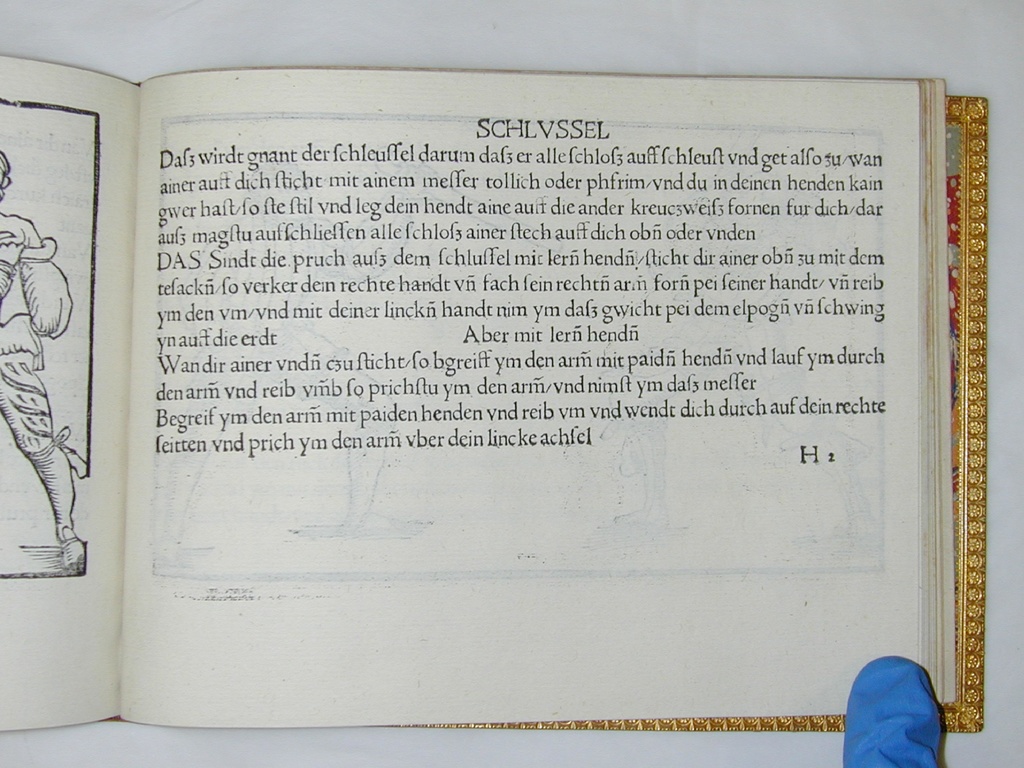 SCHLVSSEL
Daſʒ wirdt gnant der ſchleuſſel darum daſʒ er alle ſchloſʒ auff ſchleuſt vnd get alſo ʒu/wan
ainer auff dich ſticht mit ainem meſſer tollich oder phfrim/vnd du in deinen henden kain
gwer haſt/ſo ſte ſtil vnd leg dein hendt aine auff die ander kreucʒweiſʒ fornen fur dich/dar
auſʒ magſtu auſſchlieſſen alle ſchloſʒ ainer ſtech auff dich obn̄ oder vnden
DAS Sindt die pruch auſʒ dem ſchluſſel mit lern̄ hendn̄/ſticht dir ainer obn̄ ʒu mit dem
teſackn̄/ſo verker dein rechte handt vn̄ fach ſein rechtn̄ arm̄ forn̄ pei ſeiner handt/vn̄ reib
ym den vm/vnd mit deiner linckn̄ handt nim ym daſʒ gwicht pei dem elpogn̄ vn̄ ſchwing
yn auff die erdt Aber mit lern̄ hendn̄
Wan dir ainer vndn̄ cʒu ſticht/ſo bgreiff ym den arm̄ mit paidn̄ hendn̄ vnd lauf ym durch
den arm̄ vnd reib vm̄b ſo prichſtu ym den arm̄/vnd nimſt ym daſʒ meſſer
Begreif ym den arm̄ mit paiden henden vnd reib vm vnd wendt dich durch auf dein rechte
ſeitten vnd prich ym den arm̄ vber dein lincke achſel
H 2